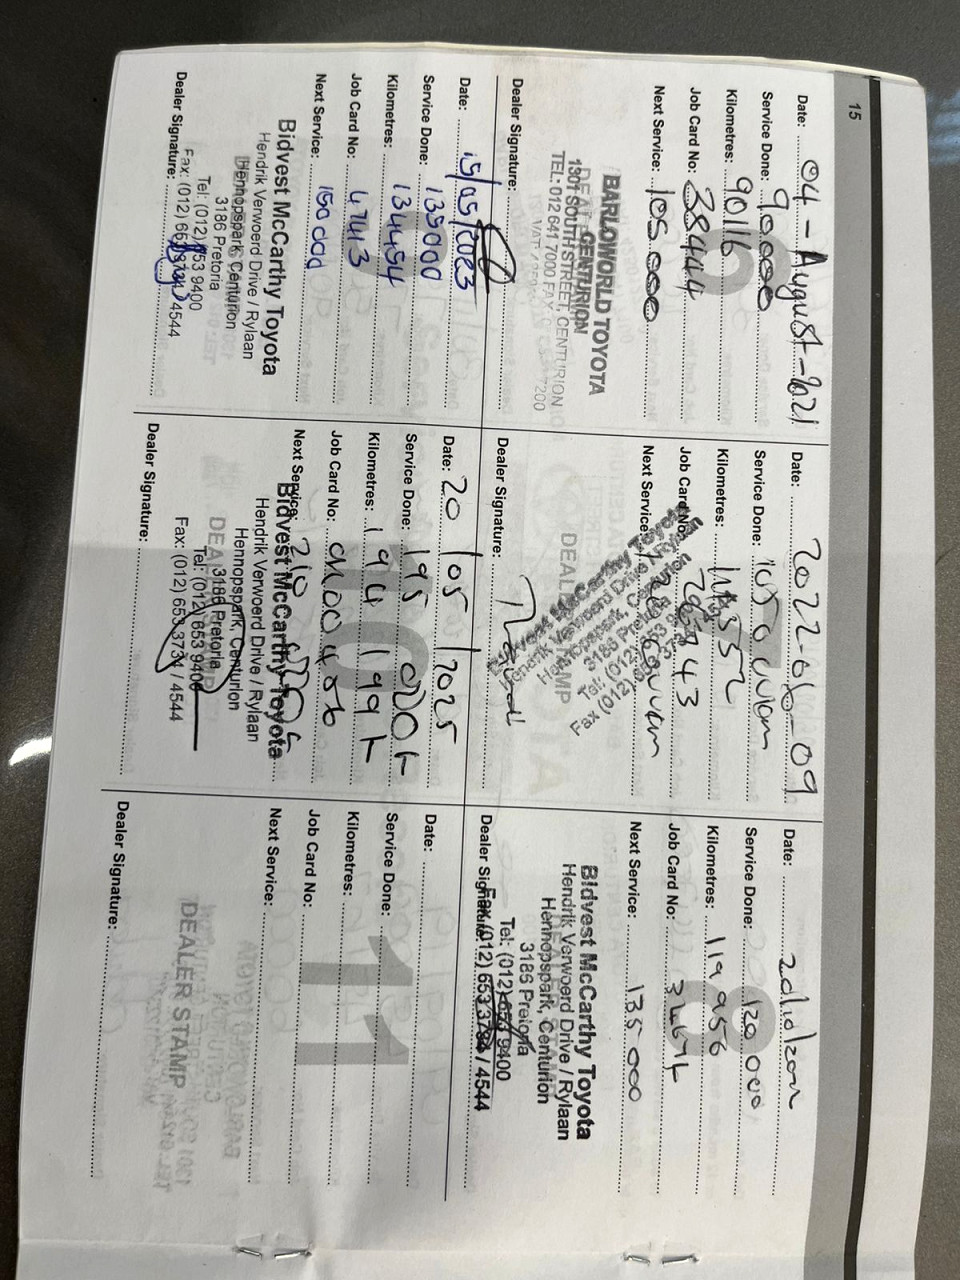 15
Date: 04 - August - 2021
Service Done: 90000
Kilometres: 90116
Job Card No: 38444
Next Service: 105 000
BARLOWORLD TOYOTA
CENTURION
1301 SOUTH STREET, CENTURION
TEL: 012 641 7000 FAX:
Dealer Signature:
Date: 2022-06-09
Service Done: 105 000km
Kilometres:
Job Card No:
Next Service:
Bidvest McCarthy Toyota
Hendrik Verwoerd Drive / Rylaan
Hennopspark,
3186 Pretoria
Tel: (012)
Fax (012)
Dealer Signature:
8
Date:
Service Done: 120 000
Kilometres: 119 956
Job Card No:
Next Service: 135 000
Bidvest McCarthy Toyota
Hendrik Verwoerd Drive / Rylaan
Hennopspark, Centurion
3186 Pretoria
Tel: (012) 653 9400
Fax: (012) 653 3734 / 4544
Dealer Signature:
Date: 15/05/2023
Service Done: 135000
Kilometres: 134454
Job Card No: 47413
Next Service: 150 000
Bidvest McCarthy Toyota
Hendrik Verwoerd Drive / Rylaan
Hennopspark, Centurion
3186 Pretoria
Tel: (012) 653 9400
Fax: (012) 653 3734 / 4544
Dealer Signature:
10
Date: 20/05/2025
Service Done: 195 000k
Kilometres: 194 199k
Job Card No:
Next Service: 210
Bidvest McCarthy Toyota
Hendrik Verwoerd Drive / Rylaan
Hennopspark, Centurion
3186 Pretoria
Tel: (012) 653 9400
Fax: (012) 653 3734 / 4544
Dealer Signature:
11
Date:
Service Done:
Kilometres:
Job Card No:
Next Service:
DEALER STAMP
Dealer Signature: